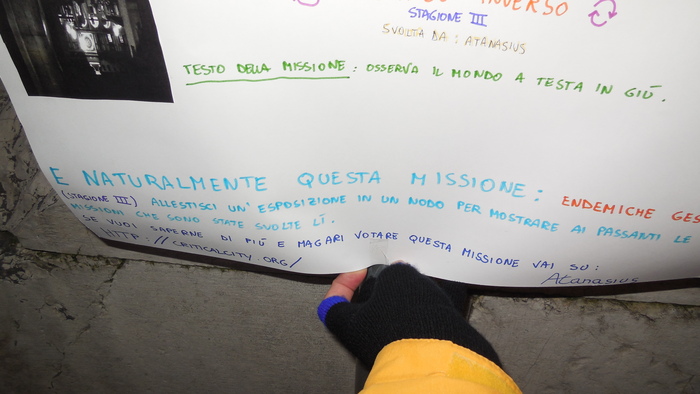 INVERSO
STAGIONE III
SVOLTA DA : ATANASIUS
TESTO DELLA MISSIONE : OSSERVA IL MONDO A TESTA IN GIÙ.
E NATURALMENTE QUESTA MISSIONE : ENDEMICHE GES
(STAGIONE III) ALLESTISCI UN'ESPOSIZIONE IN UN NODO PER MOSTRARE AI PASSANTI LE
MISSIONI CHE SONO STATE SVOLTE LÌ.
SE VUOI SAPERNE DI PIÙ E MAGARI VOTARE QUESTA MISSIONE VAI SU :
HTTP://CRITICALCITY.ORG/
Atanasius